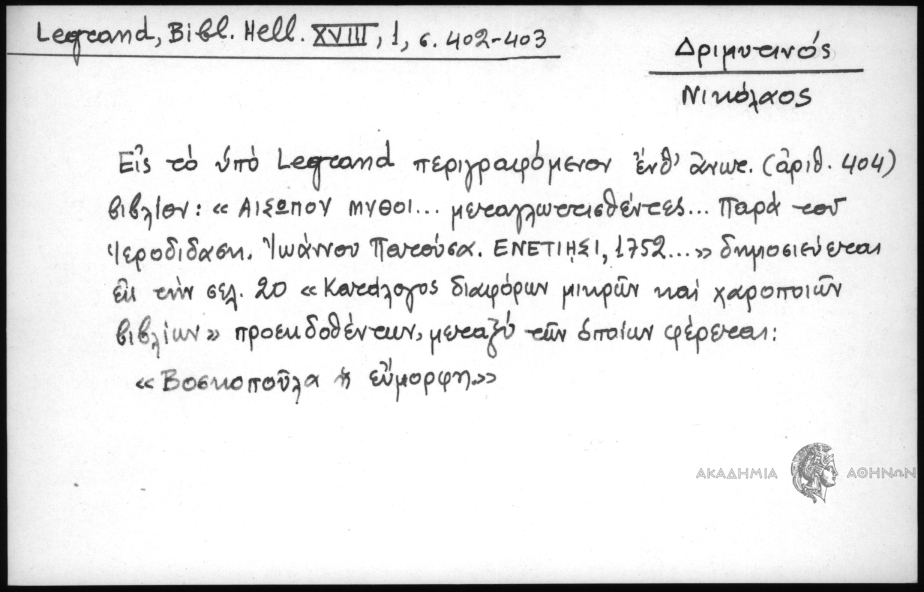 Legrand, Bibl. Hell. XVIII, 1, σ. 402-403
Δριμυτινός
Νικόλαος
Εἰς τὸ ὑπὸ Legrand περιγραφόμενον ἔνθ' ἄνωτ. (ἀριθ. 404)
βιβλίον: «ΑΙΣΩΠΟΥ ΜΥΘΟΙ... μεταγλωττισθέντες... Παρὰ τοῦ
Ἱεροδιδασκ. Ἰωάννου Πατούσα. ΕΝΕΤΙΗΣΙ, 1752...» δημοσιεύεται
εἰς τὴν σελ. 20 «Κατάλογος διαφόρων μικρῶν καὶ χαροποιῶν
βιβλίων» προεκδοθέντων, μεταξὺ τῶν ὁποίων φέρεται:
«Βοσκοποῦλα ἡ εὔμορφη.»
ΑΚΑΔΗΜΙΑ ΑΘΗΝΩΝ